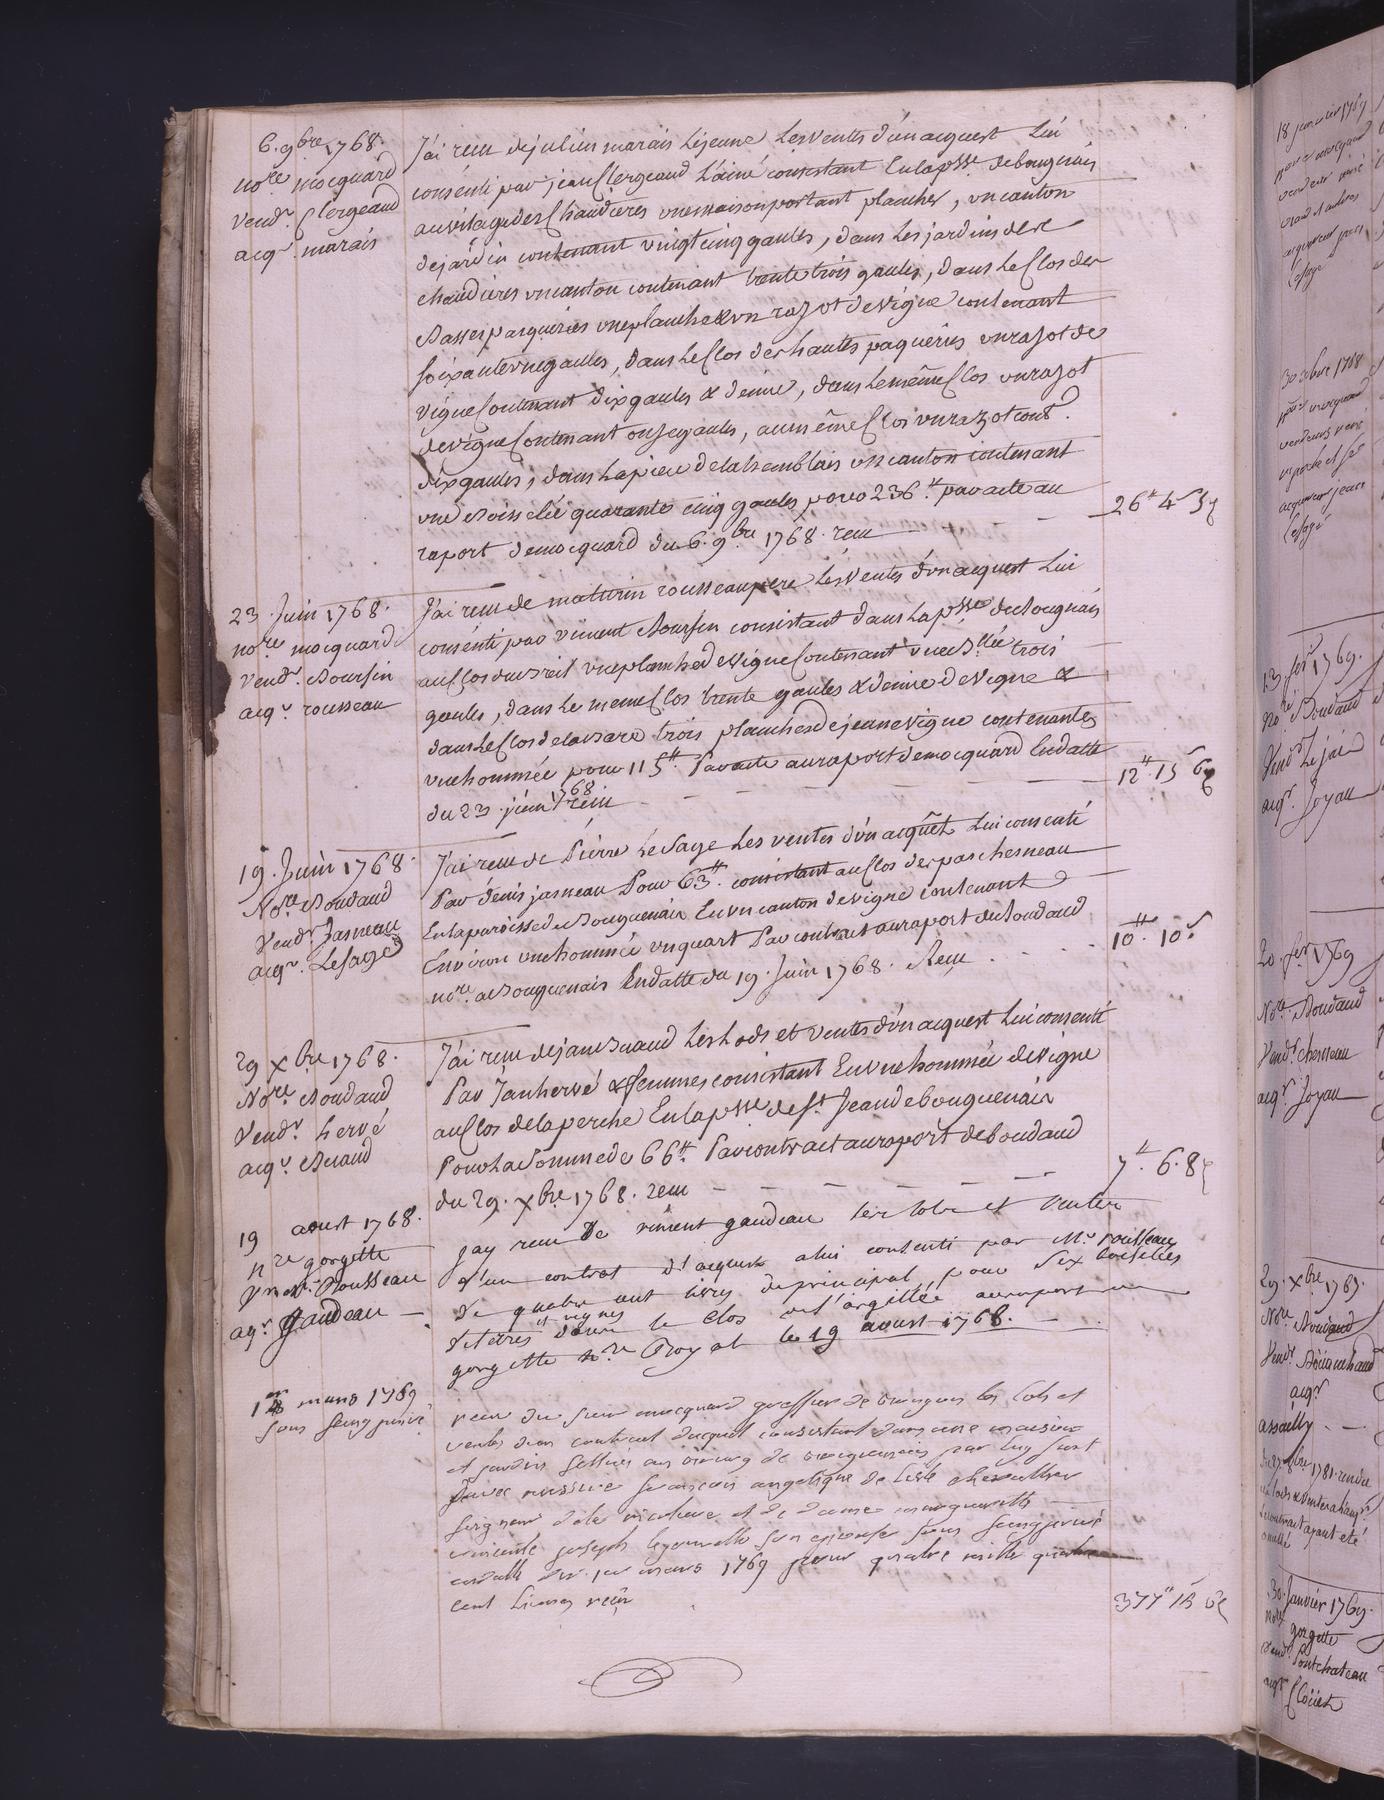 6. 9bre 1768.
nore mocquard
Vendr. Clergeaud
acqr. marais
J'ai reçu de julien marais Lejeune Les ventes d'un acquest Lui
consenti par jean Clergeaud L'ainé consistant En la psse de bouguais
au vilage des Chaudieres une maison portant plancher, un canton
de jardin contenant vingt cinq gaules, dans Les jardins des
chaudieres un canton contenant trente trois gaules, dans Le Clos des
Basses paquiries une planche & un razot de vigne contenant
soixante une gaules, dans Le Clos des hautes paqueries un razot de
vigne Contenant dix gaules & demie, dans Le même Clos un razot
de vigne Contenant onze gaules, au même Clos un razot cont.
dix gaules, dans La piece de la hemblais un canton contenant
une Boisselée quarante cinq gaules pour 236.tt par acte au
raport de mocquard du 6. 9bre 1768. reçu
26tt 4s 5
23. Juin 1768.
nore mocquard
Vendr. Boursin
acqr. rousseau
J'ai reçu de maturin rousseau pere Les ventes d'un acquest Lui
consenti par vincent Boursin consistant dans La psse de Bouguais
au Clos une planche de vigne Contenant une Bllée trois
gaules, dans Le meme Clos trente gaules & demie de vigne &
dans Le Clos de trois planches de jeune vigne contenantes
une hommée pour 115tt. Par acte au raport de mocquard En datte
du 23. juin 1768 reçu
12tt. 15 6
19. Juin 1768.
Nore Boudaud
Vendr. Jasneau
acqr. Lesage
J'ai reçu de Pierre Le Sage Les ventes d'un acquêt Lui consenti
Par denis jasneau Pour 63tt. consistant au Clos des pas chesneau
En la paroisse de Bouguenais En un canton de vigne contenant
Environ une hommée un quart Par contract au raport de Boudaud
nore. a Bouguenais En datte du 19. Juin 1768. Reçu
10tt. 10s
29 xbre 1768.
Nore Boudaud
Vendr. hervé
acqr. Buaud
J'ai reçu de jan Buaud Les Lods et ventes d'un acquest Lui consenti
Par Jan hervé & femme consistant En une hommée de vigne
au Clos de la perche En la psse de St. Jean de bouguenais
Pour La Somme de 66tt. Par contract au raport de boudaud
du 29. xbre 1768. reçu
7tt. 6. 8
19 aoust 1768.
nre gorgette
Rousseau
aqr. gaudeau
Jay reçu de vincent gaudeau Les lots et ventes
d'un contrat d'acquest a lui consenti par Mr rousseau
de quatre cent livres de principal, pour six boisselées
de terres et vignes dans le Clos de l'argillée au raport de
gorgette nre Royal le 19 aoust 1768.
1er mars 1769
sous seing privé
reçu du sieur mocquard greffier de bouguais les lods et
ventes d'un contrat d'acquet consistant dans une maison
et jardin scittués au bourg de bouguenais par luy fait
d'avec messire francois angelique de Lisle chevallier
seigneur et de dame margueritte
vincente joseph son epouse sous seing privé
en datte du 1er mars 1769 pour quatre mille quatre
cent livres reçu
377tt
18 janvier 1769
30 xbre 1768
13 fer 1769.
Nore Boudaud
Vendr Lejai
acqr. Joyau
20 fer 1769
Nore. Boudaud
Vendr chesneau
acqr Joyau
29. xbre 1769.
Nore Boudaud
Vendr
acqr
assailly
30. Janvier 1769.
Nore gorgette
Vendr Pontchateau
acqr Cloüet